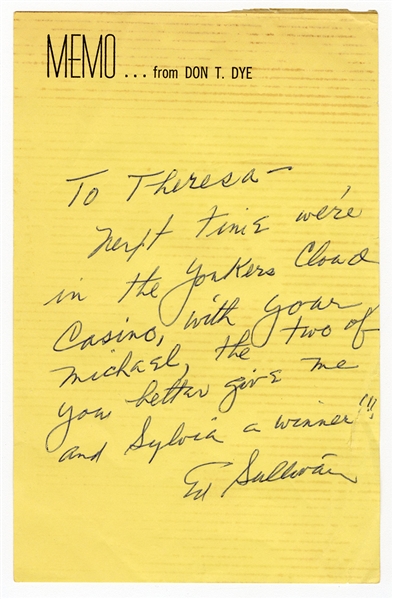 MEMO ... from DON T. DYE
To Theresa—
Next time we're
in the Yonkers Cloud
Casino, with your
Michael, the two of
you better give me
and Sylvia a winner!!!
Ed Sullivan